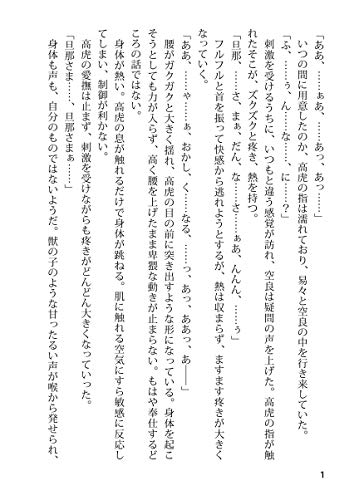 「ああ、……ぁあ、……あっ、あっ……」
いつの間に用意したのか、高虎の指は濡れており、易々と空良の中を行き来していた。
「ふ、……ぅ、ん……な、……に、……？」
刺激を受けるうちに、いつもと違う感覚が訪れ、空良は疑問の声を上げた。高虎の指が触
れたそこが、ズクズクと疼き、熱を持つ。
「旦那、……さ、まぁ、だん、な……さ……ぁあ、んんん、……ぅ」
フルフルと首を振って快感から逃れようとするが、熱は収まらず、ますます疼きが大きく
なっていく。
「ああ、……や……ぁ、おかし、く……なる、……っ、あっ、ああっ、あ――」
腰がガクガクと大きく揺れ、高虎の目の前に突き出すような形になっている。身体を起こ
そうとしても力が入らず、高く腰を上げたまま卑猥な動きが止まらない。もはや奉仕するど
ころの話ではない。
身体が熱い。高虎の息が触れるだけで身体が跳ねる。肌に触れる空気にすら敏感に反応し
てしまい、制御が利かない。
高虎の愛撫は止まず、刺激を受けながらも疼きがどんどん大きくなっていった。
「旦那さま……、旦那さまぁ……」
身体も声も、自分のものではないようだ。獣の子のような甘ったるい声が喉から発せられ、
1